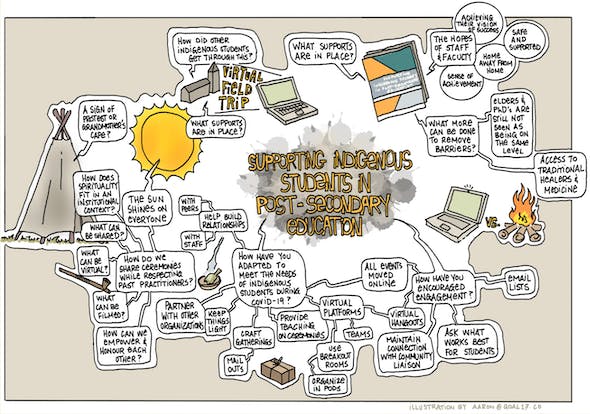 ACHIEVING
THEIR VISION OF
SUCCESS
SAFE
AND
SUPPORTED
HOME
AWAY FROM
HOME
SENSE OF
ACHIEVEMENT
THE HOPES
OF STAFF
& FACULTY
WHAT SUPPORTS
ARE IN PLACE?
HOW DID OTHER
INDIGENOUS STUDENTS
GET THROUGH THIS?
VIRTUAL
FIELD
TRIP
WHAT SUPPORTS
ARE IN PLACE?
A SIGN OF
PROTEST OR
GRANDMOTHER'S
CAPE?
ELDERS &
PhD's ARE
STILL NOT
SEEN AS
BEING ON
THE SAME
LEVEL
WHAT MORE
CAN BE DONE
TO REMOVE
BARRIERS?
ACCESS TO
TRADITIONAL
HEALERS &
MEDICINE
SUPPORTING INDIGENOUS
STUDENTS IN
POST-SECONDARY
EDUCATION
HOW DOES
SPIRITUALITY
FIT IN AN
INSTITUTIONAL
CONTEXT?
THE SUN
SHINES ON
EVERYONE
WITH
PEERS
HELP BUILD
RELATIONSHIPS
WITH
STAFF
WHAT CAN
BE SHARED?
WHAT
CAN BE
VIRTUAL?
WHAT
CAN BE
FILMED?
HOW DO WE
SHARE CEREMONIES
WHILE RESPECTING
PAST PRACTITIONERS?
HOW CAN WE
EMPOWER &
HONOUR EACH
OTHER?
HOW HAVE YOU
ADAPTED TO
MEET THE NEEDS
OF INDIGENOUS
STUDENTS DURING
COVID-19?
PARTNER
WITH OTHER
ORGANIZATIONS
KEEP
THINGS
LIGHT
CRAFT
GATHERINGS
MAIL
OUTS
PROVIDE
TEACHING
ON CEREMONIES
VIRTUAL
PLATFORMS
TEAMS
USE
BREAKOUT
ROOMS
ORGANIZE
IN PODS
VS.
ALL EVENTS
MOVED
ONLINE
HOW HAVE YOU
ENCOURAGED
ENGAGEMENT?
EMAIL
LISTS
VIRTUAL
HANGOUTS
MAINTAIN
CONNECTION
WITH COMMUNITY
LIAISON
ASK WHAT
WORKS BEST
FOR STUDENTS
ILLUSTRATION BY AARON @ GOAL17.CO